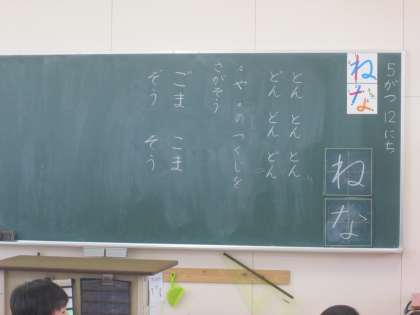 5がつ12にち
ね
な
ね
な
とん とん とん
どん どん どん
゛や゜のつくじを
さがそう
ごま こま
ぞう そう